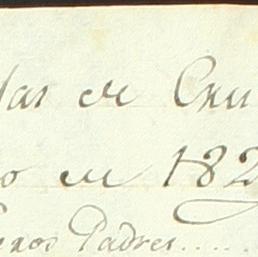 las de Cru
o en 182
enos Padres.....